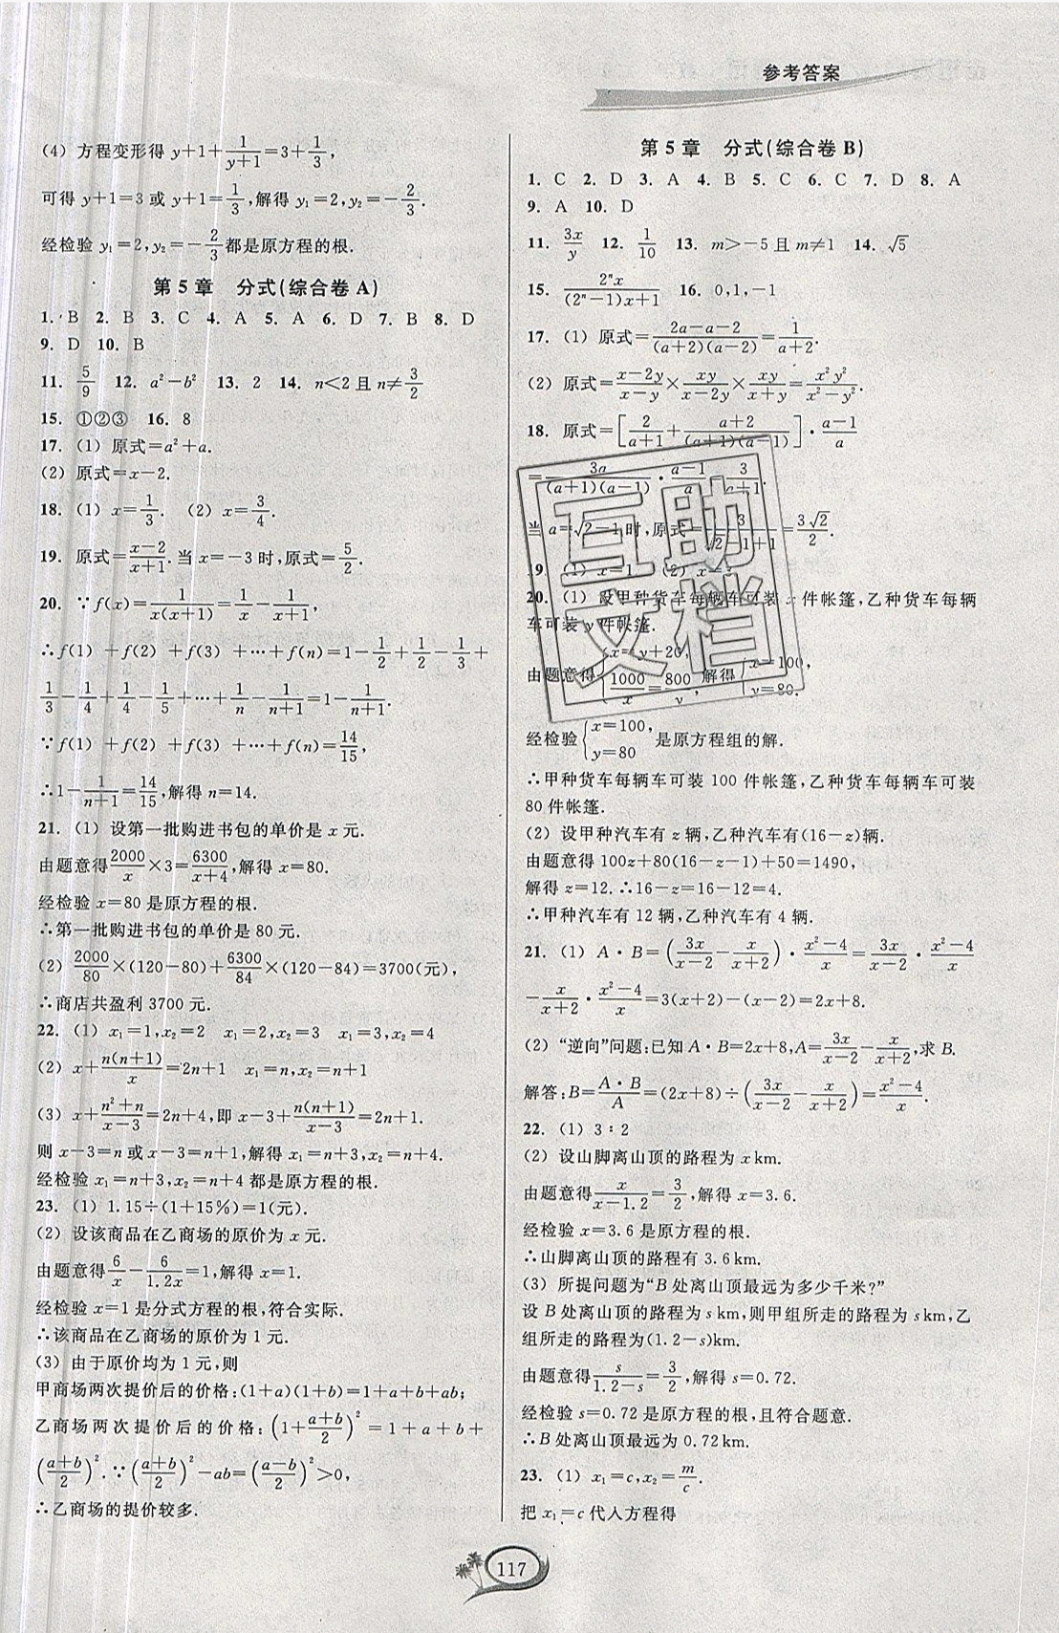 参考答案
(4) 方程变形得 y+1+\frac{1}{y+1}=3+\frac{1}{3},
可得 y+1=3 或 y+1=\frac{1}{3},解得 y₁=2,y₂=-\frac{2}{3}.
经检验 y₁=2,y₂=-\frac{2}{3}都是原方程的根.
第 5 章 分式(综合卷 A)
1. B 2. B 3. C 4. A 5. A 6. D 7. B 8. D
9. D 10. B
11. \frac{5}{9} 12. a²-b² 13. 2 14. n<2 且 n≠\frac{3}{2}
15. ①②③ 16. 8
17. (1) 原式=a²+a.
(2) 原式=x-2.
18. (1) x=\frac{1}{3}. (2) x=\frac{3}{4}.
19. 原式=\frac{x-2}{x+1}.当 x=-3 时,原式=\frac{5}{2}.
20. ∵f(x)=\frac{1}{x(x+1)}=\frac{1}{x}-\frac{1}{x+1},
∴f(1) +f(2) +f(3) +…+f(n)=1-\frac{1}{2}+\frac{1}{2}-\frac{1}{3}+
\frac{1}{3}-\frac{1}{4}+\frac{1}{4}-\frac{1}{5}+…+\frac{1}{n}-\frac{1}{n+1}=1-\frac{1}{n+1}.
∵f(1) +f(2) +f(3) +…+f(n)=\frac{14}{15},
∴1-\frac{1}{n+1}=\frac{14}{15},解得 n=14.
21. (1) 设第一批购进书包的单价是 x 元.
由题意得\frac{2000}{x}×3=\frac{6300}{x+4},解得 x=80.
经检验 x=80 是原方程的根.
∴第一批购进书包的单价是 80 元.
(2) \frac{2000}{80}×(120-80)+\frac{6300}{84}×(120-84)=3700(元),
∴商店共盈利 3700 元.
22. (1) x₁=1,x₂=2 x₁=2,x₂=3 x₁=3,x₂=4
(2) x+\frac{n(n+1)}{x}=2n+1 x₁=n,x₂=n+1
(3) x+\frac{n²+n}{x-3}=2n+4,即 x-3+\frac{n(n+1)}{x-3}=2n+1.
则 x-3=n 或 x-3=n+1,解得 x₁=n+3,x₂=n+4.
经检验 x₁=n+3,x₂=n+4 都是原方程的根.
23. (1) 1.15÷(1+15%)=1(元).
(2) 设该商品在乙商场的原价为 x 元.
由题意得\frac{6}{x}-\frac{6}{1.2x}=1,解得 x=1.
经检验 x=1 是分式方程的根,符合实际.
∴该商品在乙商场的原价为 1 元.
(3) 由于原价均为 1 元,则
甲商场两次提价后的价格:(1+a)(1+b)=1+a+b+ab;
乙商场两次提价后的价格:(1+\frac{a+b}{2})²=1+a+b+
(\frac{a+b}{2})².∵(\frac{a+b}{2})²-ab=(\frac{a-b}{2})²>0,
∴乙商场的提价较多.
第 5 章 分式(综合卷 B)
1. C 2. D 3. A 4. B 5. C 6. C 7. D 8. A
9. A 10. D
11. \frac{3x}{y} 12. \frac{1}{10} 13. m>-5 且 m≠1 14. √5
15. \frac{2ⁿx}{(2ⁿ-1)x+1} 16. 0,1,-1
17. (1) 原式=\frac{2a-a-2}{(a+2)(a-2)}=\frac{1}{a+2}.
(2) 原式=\frac{x-2y}{x-y}×\frac{xy}{x-2y}×\frac{xy}{x+y}=\frac{x²y²}{x²-y²}.
18. 原式=[\frac{2}{a+1}+\frac{a+2}{(a+1)(a-1)}]·\frac{a-1}{a}
=\frac{3a}{(a+1)(a-1)}·\frac{a-1}{a}=\frac{3}{a+1}.
当 a=√2-1 时,原式=\frac{3}{√2-1+1}=\frac{3√2}{2}.
19. (1) x=1 (2) x=
20. (1) 设甲种货车每辆车可装 x 件帐篷,乙种货车每辆
车可装 y 件帐篷.
由题意得{x=y+20, \frac{1000}{x}=\frac{800}{y},解得{x=100, y=80.
经检验{x=100, y=80 是原方程组的解.
∴甲种货车每辆车可装 100 件帐篷,乙种货车每辆车可装
80 件帐篷.
(2) 设甲种汽车有 z 辆,乙种汽车有(16-z)辆.
由题意得 100z+80(16-z-1)+50=1490,
解得 z=12.∴16-z=16-12=4.
∴甲种汽车有 12 辆,乙种汽车有 4 辆.
21. (1) A·B=(\frac{3x}{x-2}-\frac{x}{x+2})·\frac{x²-4}{x}=\frac{3x}{x-2}·\frac{x²-4}{x}
-\frac{x}{x+2}·\frac{x²-4}{x}=3(x+2)-(x-2)=2x+8.
(2) “逆向”问题:已知 A·B=2x+8,A=\frac{3x}{x-2}-\frac{x}{x+2},求 B.
解答:B=\frac{A·B}{A}=(2x+8)÷(\frac{3x}{x-2}-\frac{x}{x+2})=\frac{x²-4}{x}.
22. (1) 3∶2
(2) 设山脚离山顶的路程为 x km.
由题意得\frac{x}{x-1.2}=\frac{3}{2},解得 x=3.6.
经检验 x=3.6 是原方程的根.
∴山脚离山顶的路程有 3.6 km.
(3) 所提问题为“B 处离山顶最远为多少千米?”
设 B 处离山顶的路程为 s km,则甲组所走的路程为 s km,乙
组所走的路程为(1.2-s)km.
由题意得\frac{s}{1.2-s}=\frac{3}{2},解得 s=0.72.
经检验 s=0.72 是原方程的根,且符合题意.
∴B 处离山顶最远为 0.72 km.
23. (1) x₁=c,x₂=\frac{m}{c}.
把 x₁=c 代入方程得
互助
文档
117